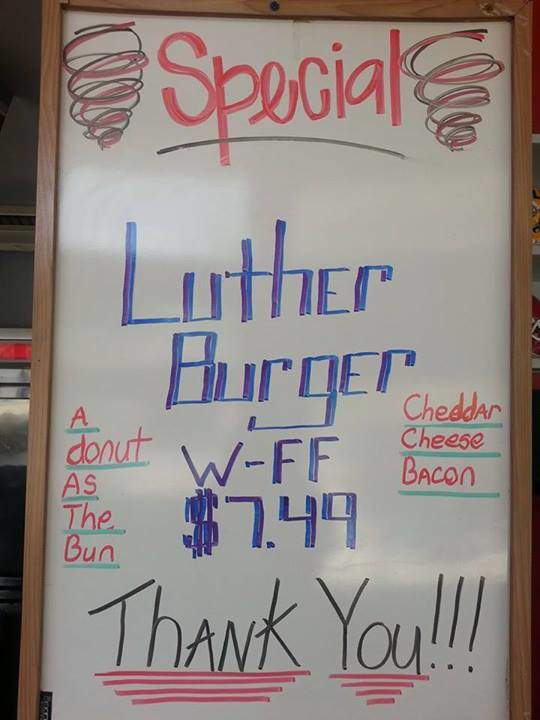 Special
Luther
Burger
W-FF
$7.49
A
donut
As
The
Bun
Cheddar
Cheese
Bacon
Thank You!!!